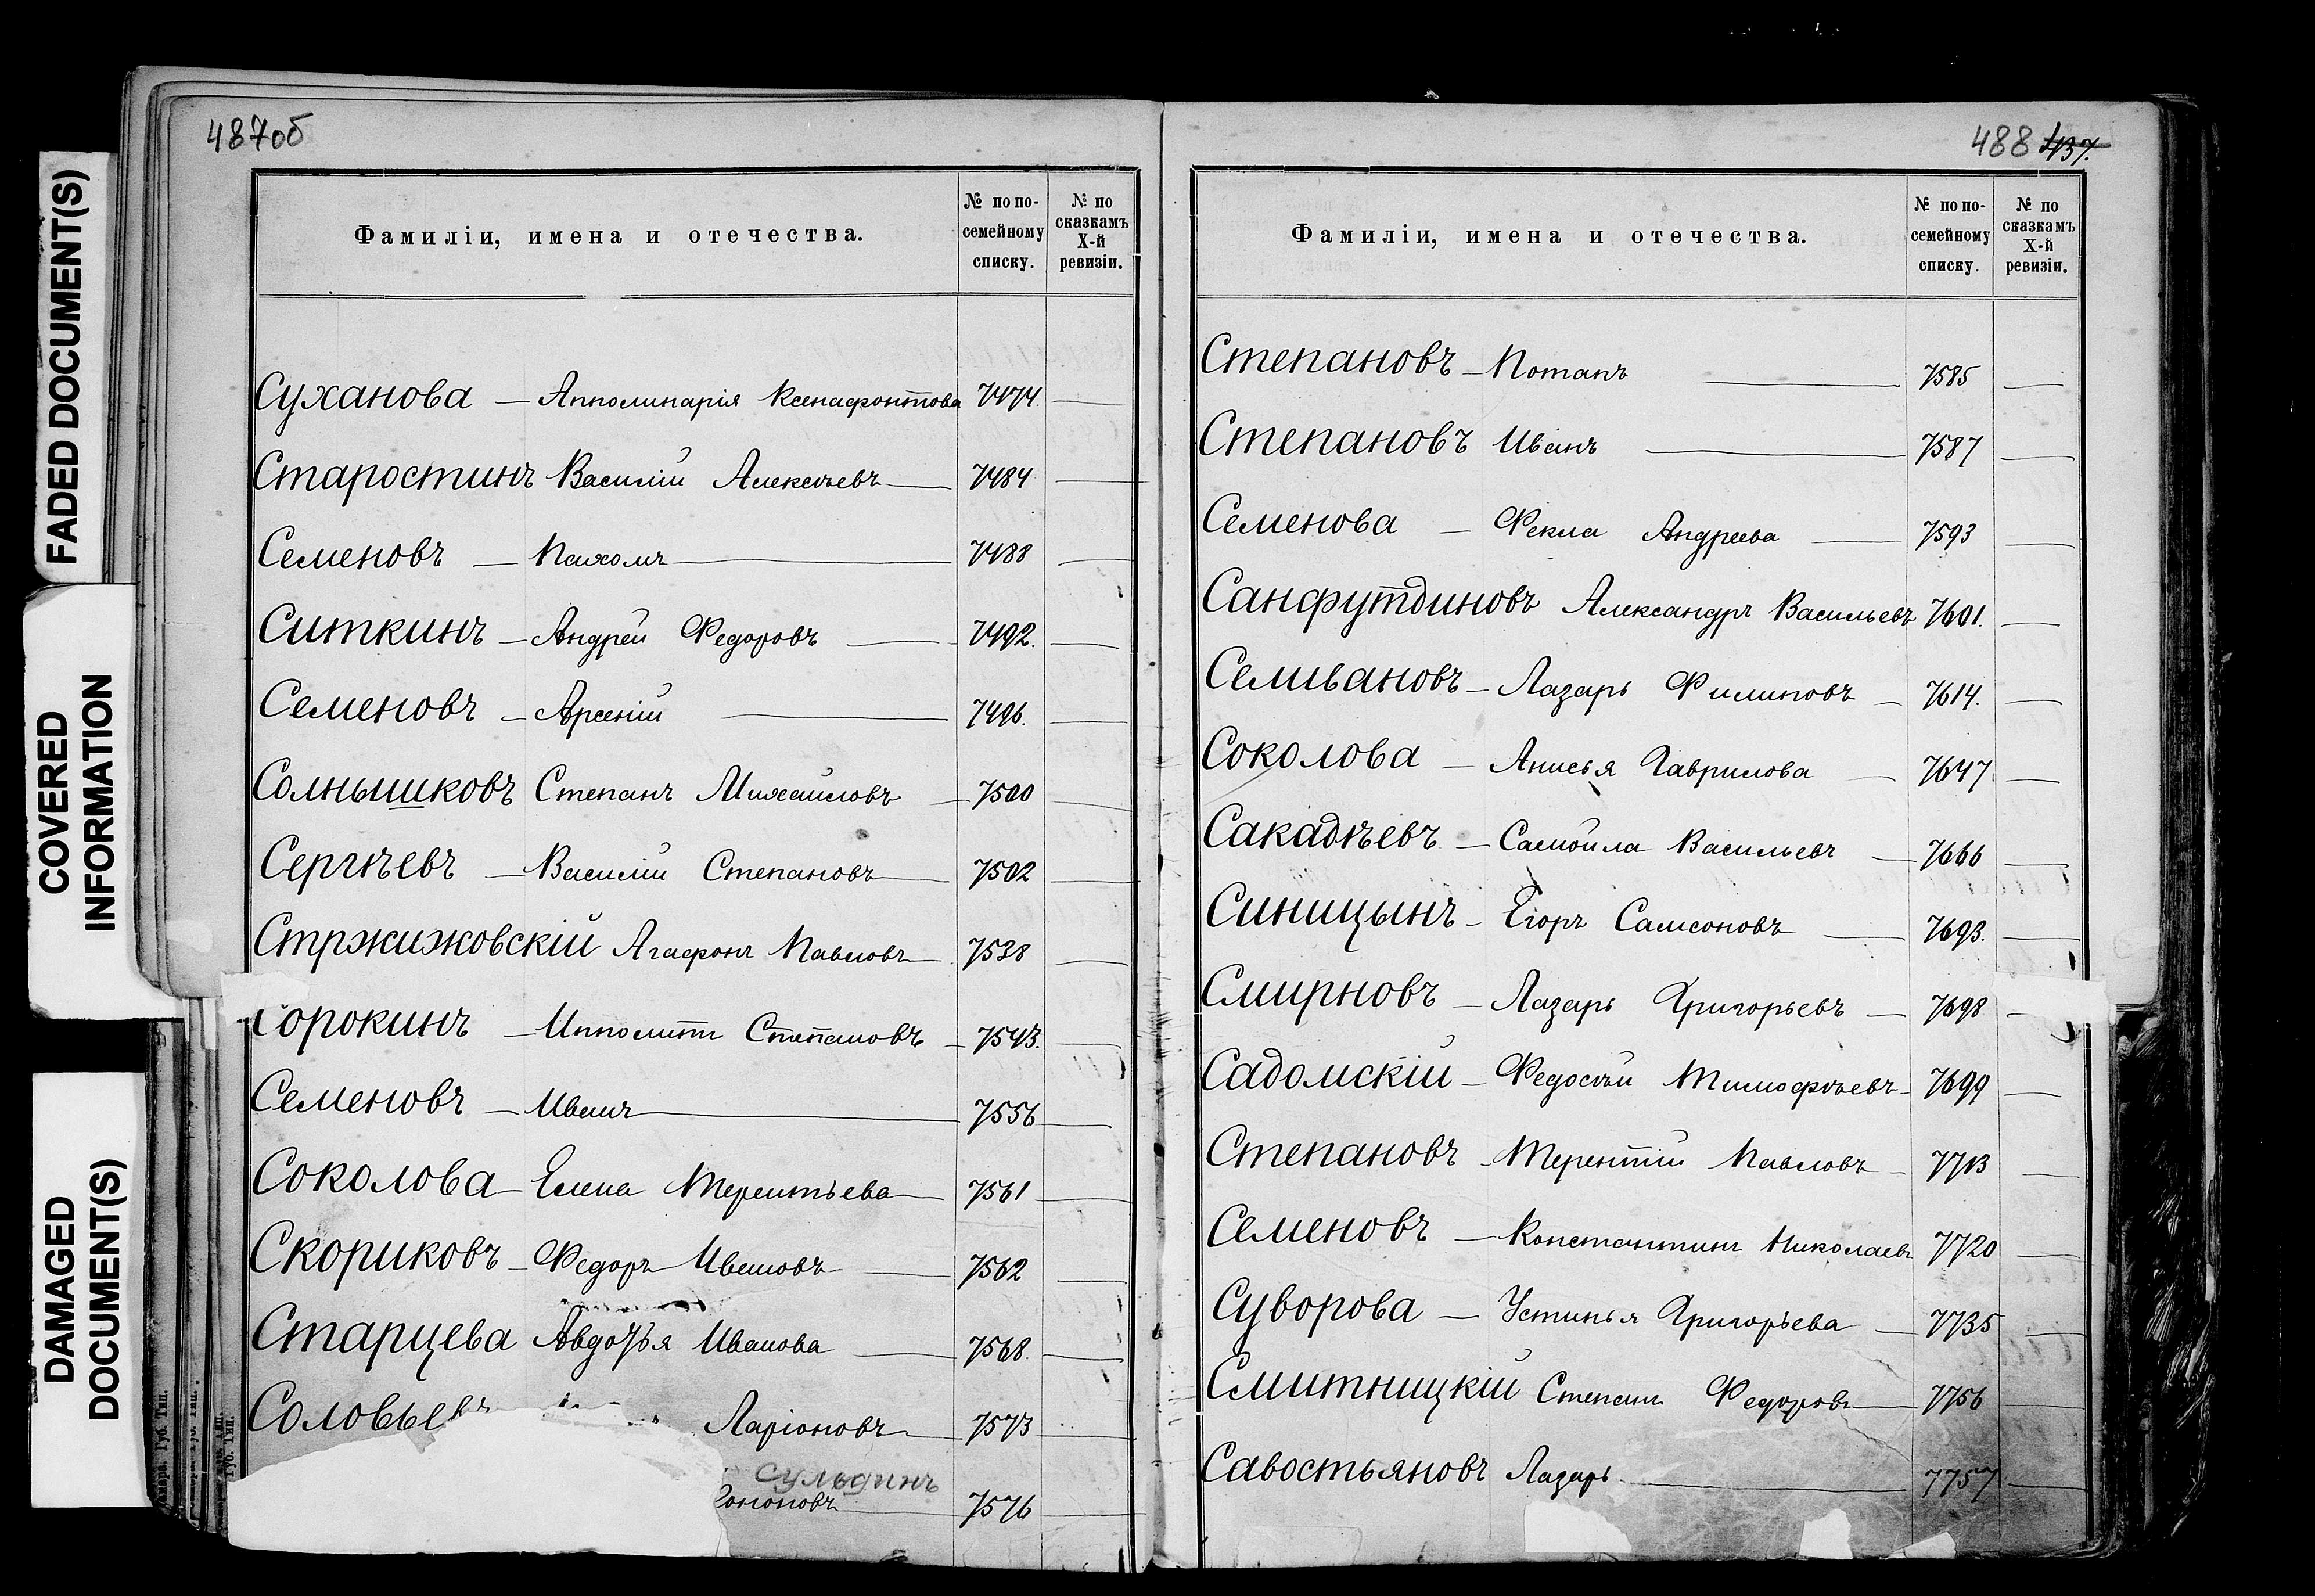 FADED DOCUMENT(S)
COVERED
INFORMATION
DAMAGED
DOCUMENT(S)
487об
Фамиліи, имена и отечества.
№ по по-
семейному
списку.
№ по
сказкамъ
X-й
ревизіи.
Суханова — Апполинарія Ксенафонтова 7474.
Старостинъ Василій Алексѣевъ 7484
Семеновъ — Пахомъ 7488
Ситкинъ — Андрей Федоровъ 7492.
Семеновъ — Арсеній 7496.
Солнышковъ Степанъ Михайловъ 7500
Сергѣевъ — Василій Степановъ 7502
Стржижовскій Агафонъ Павловъ 7538
Сорокинъ — Ипполитъ Степановъ 7543.
Семеновъ — Иванъ 7556
Соколова — Елена Терентьева 7561
Скориковъ — Федоръ Ивановъ 7562
Старцева Авдотья Иванова 7568.
Соловьевъ Ларіоновъ 7573
Сульдинъ
7576
488 437.
Фамиліи, имена и отечества.
№ по по-
семейному
списку.
№ по
сказкамъ
X-й
ревизіи.
Степановъ — Потапъ 7585
Степановъ Иванъ 7587
Семенова — Фекла Андреева 7593
Санфутдиновъ Александръ Васильевъ 7601.
Селивановъ — Лазарь Филиповъ 7614.
Соколова — Анисья Гаврилова 7647
Сакадѣевъ — Самойла Васильевъ 7666
Синицынъ — Егоръ Самсоновъ 7693.
Смирновъ — Лазарь Григорьевъ 7698
Садомскій — Федосѣй Тимофѣевъ 7699
Степановъ Терентій Павловъ 7713
Семеновъ — Константинъ Николаевъ 7720
Суворова — Устинья Григорьева 7735
Смитницкій Степанъ Федоровъ 7756
Савостьяновъ Лазарь 7757